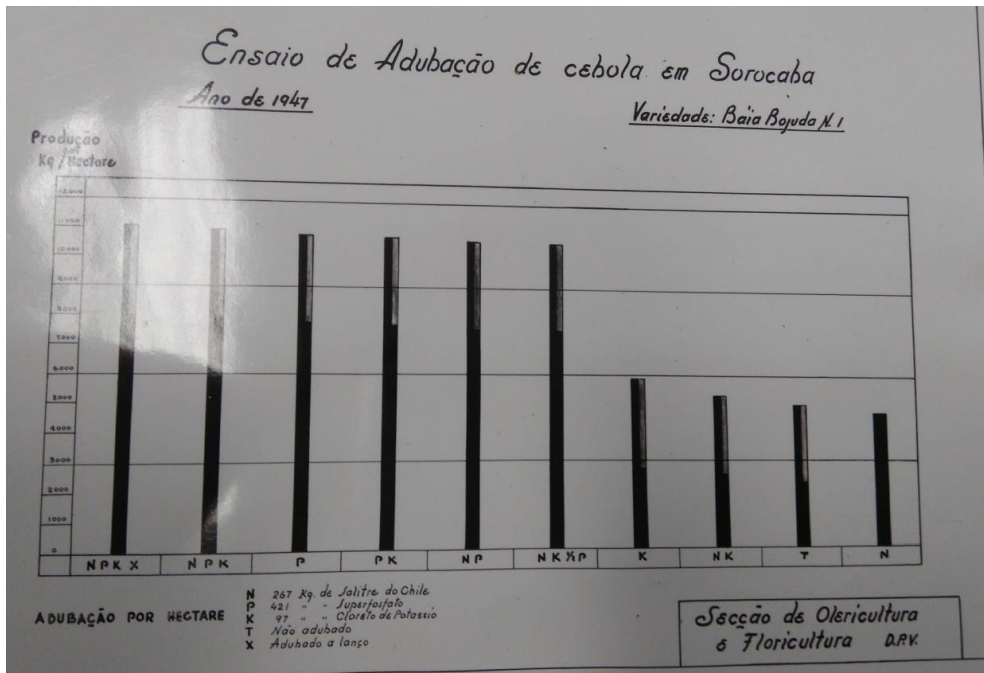 Ensaio de Adubação de cebola em Sorocaba
Ano de 1947
Variedade: Báia Bojuda N.1
Produção
em
Kg/Hectare
12000
11000
10000
9000
8000
7000
6000
5000
4000
3000
2000
1000
0
N P K X
N P K
P
P K
N P
N K ½P
K
N K
T
N
ADUBAÇÃO POR HECTARE
N 267 Kg. de Salitre do Chile
P 421 " " Superfosfato
K 97 " " Cloreto de Potassio
T Não adubado
X Adubado a lanço
Secção de Olericultura
e Floricultura D.P.V.